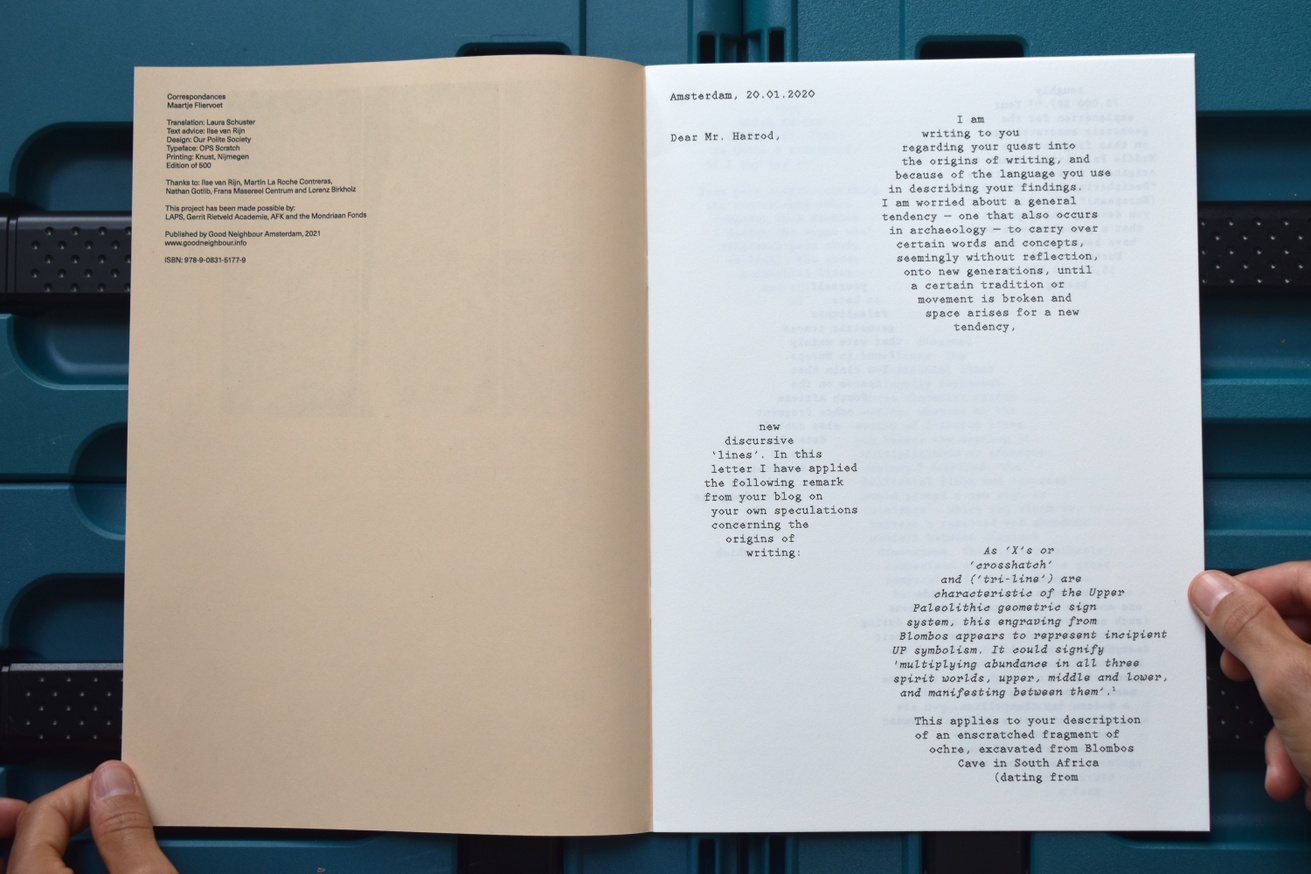 Correspondances
Maartje Fliervoet
Translation: Laura Schuster
Text advice: Ilse van Rijn
Design: Our Polite Society
Typeface: OPS Scratch
Printing: Knust, Nijmegen
Edition of 500
Thanks to: Ilse van Rijn, Martín La Roche Contreras,
Nathan Gotlib, Frans Masereel Centrum and Lorenz Birkholz
This project has been made possible by:
LAPS, Gerrit Rietveld Academie, AFK and the Mondriaan Fonds
Published by Good Neighbour Amsterdam, 2021
www.goodneighbour.info
ISBN: 978-9-0831-5177-9
Amsterdam, 20.01.2020
Dear Mr. Harrod,
I am
writing to you
regarding your quest into
the origins of writing, and
because of the language you use
in describing your findings.
I am worried about a general
tendency — one that also occurs
in archaeology — to carry over
certain words and concepts,
seemingly without reflection,
onto new generations, until
a certain tradition or
movement is broken and
space arises for a new
tendency,
new
discursive
‘lines’. In this
letter I have applied
the following remark
from your blog on
your own speculations
concerning the
origins of
writing:
As ‘X’s or
‘crosshatch’
and (‘tri-line’) are
characteristic of the Upper
Paleolithic geometric sign
system, this engraving from
Blombos appears to represent incipient
UP symbolism. It could signify
‘multiplying abundance in all three
spirit worlds, upper, middle and lower,
and manifesting between them’.¹
This applies to your description
of an enscratched fragment of
ochre, excavated from Blombos
Cave in South Africa
(dating from